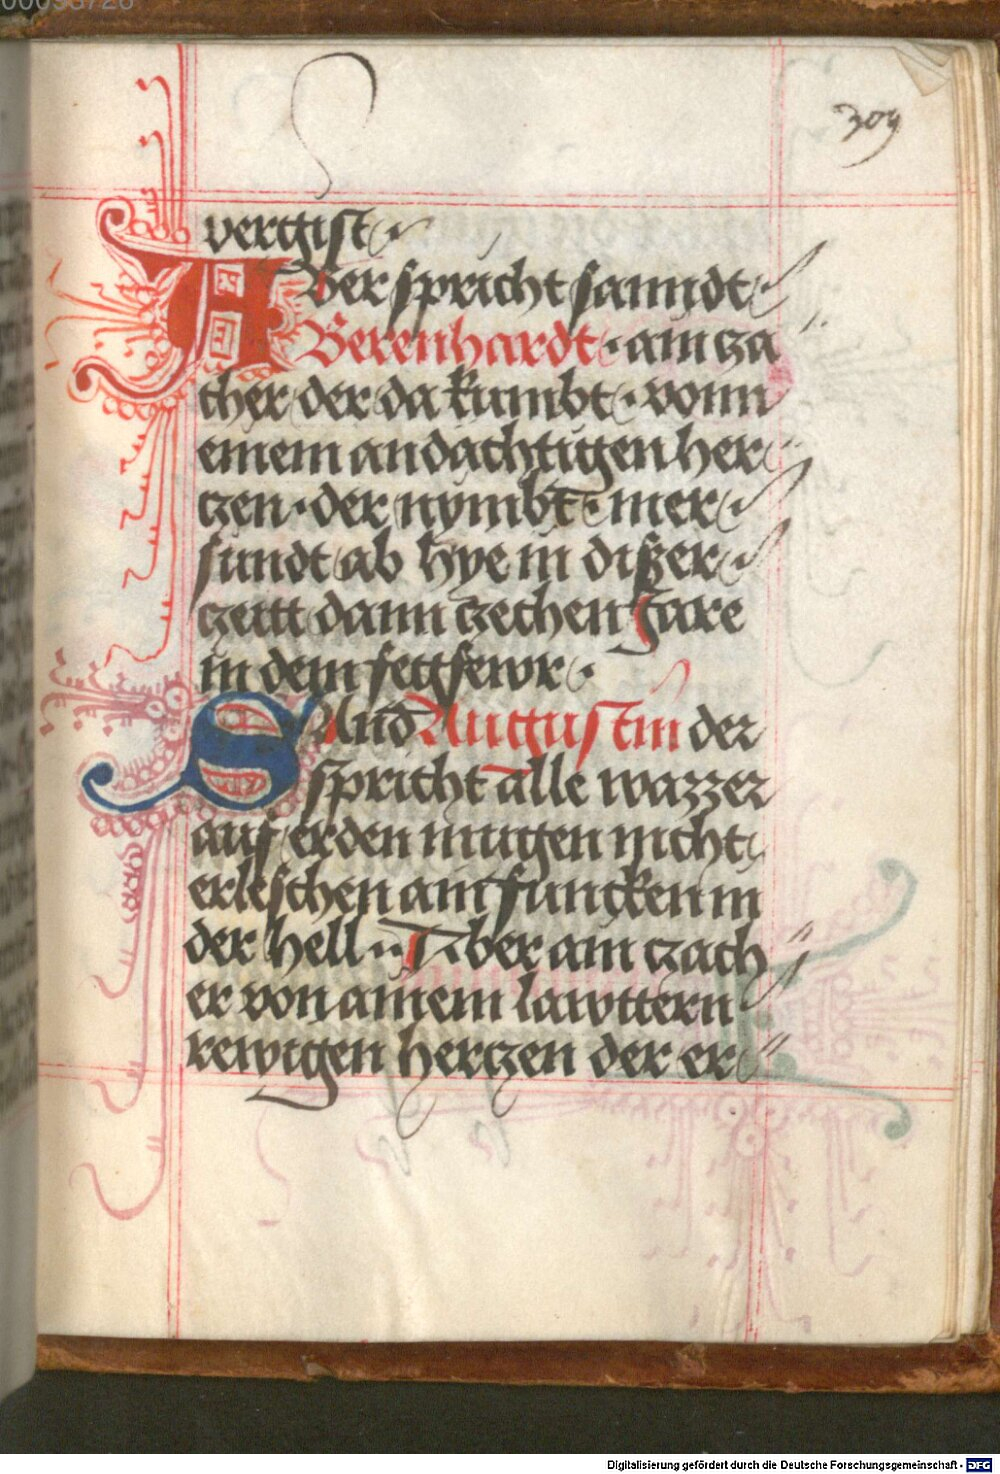 00093726
309
vergist
Aber spricht sanndt
Berenhardt · ain za
cher der da kumbt · vonn
einem andachtigen her
tzen · der nymbt · mer
sundt ab hye in diszer
zeitt dann zechen Jare
in dem fegfewr ·
Sand Augustin der
spricht alle wazzer
auf erden mugen nicht
erleschen ain funcken in
der hell · Aber ain zach
er von ainem lawttern
rewigen hertzen der er
Digitalisierung gefördert durch die Deutsche Forschungsgemeinschaft - DFG